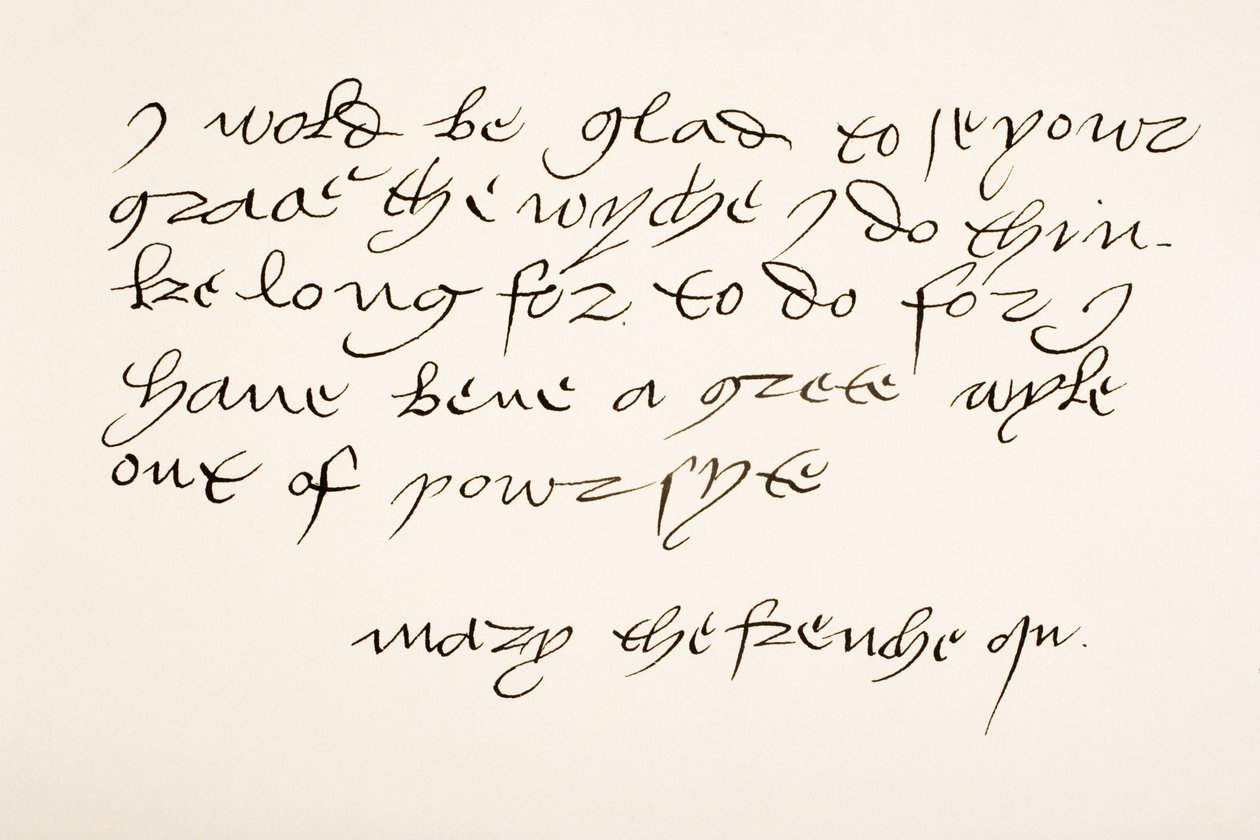 I wold be glad to se yowr
graac the wyche I do thin-
ke long for. to do for I
haue bene a grete wyle
out of yowr syte
mary the frenche qu.